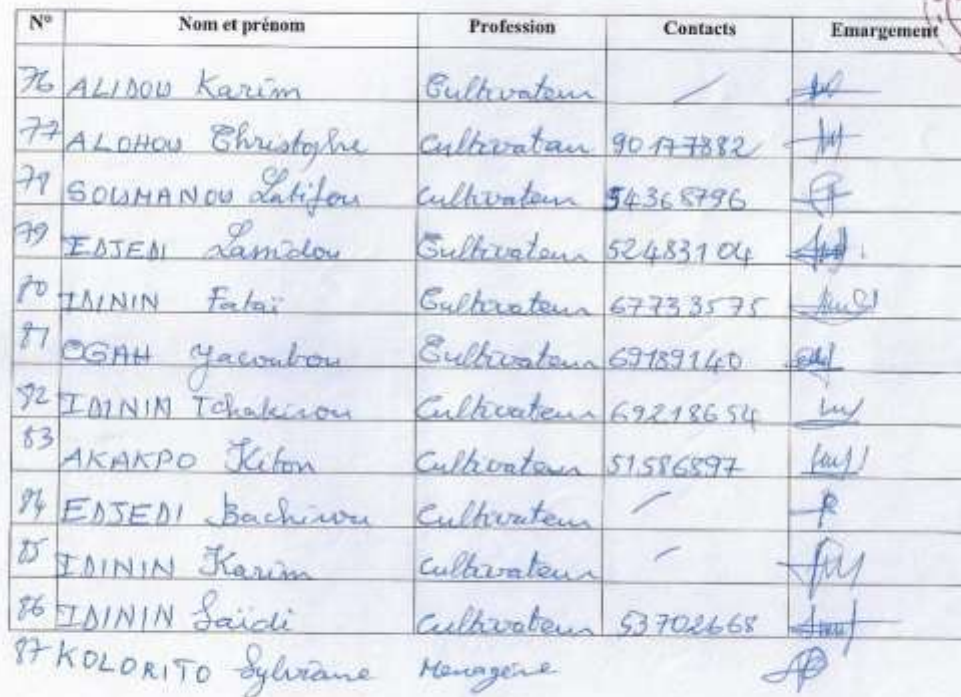 N° Nom et prénom Profession Contacts Emargement
76 ALIDOU Karim Cultivateur /
77 ALOHOU Christophe Cultivateur 90177382
78 SOUMANOU Latifou Cultivateur 54368796
79 EDJEDI Lamidou Cultivateur 52483104
80 IDININ Fataï Cultivateur 67733575
81 OGAH Yacoubou Cultivateur 69189140
82 IDININ Tchakirou Cultivateur 69218654
83 AKAKPO Kiton Cultivateur 51586897
84 EDJEDI Bachirou Cultivateur /
85 IDININ Karim Cultivateur /
86 IDININ Saïdi Cultivateur 53702668
87 KOLORITO Sylviane Menagère